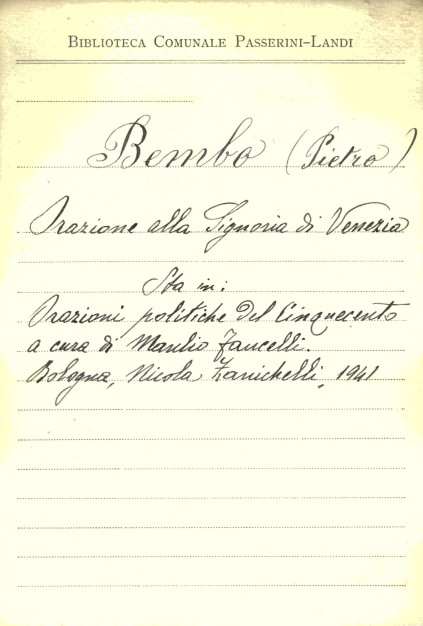 BIBLIOTECA COMUNALE PASSERINI-LANDI
Bembo (Pietro)
Orazione alla Signoria di Venezia
Sta in:
Orazioni politiche del Cinquecento
a cura di Manlio Fancelli.
Bologna, Nicola Zanichelli, 1941